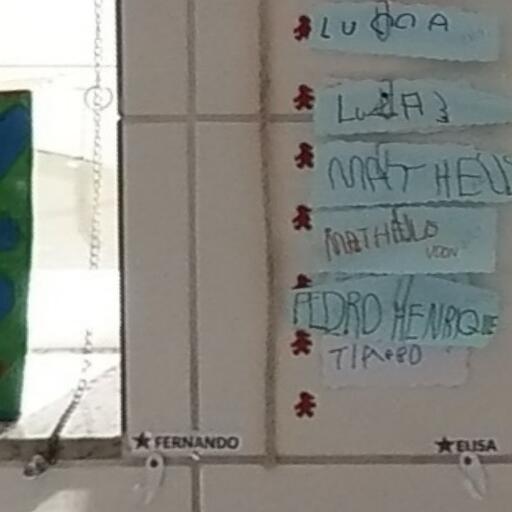 LUCCA
LUCAS
MATHEUS
MATHEUS
PEDRO HENRIQUE
★ FERNANDO
★ ELISA